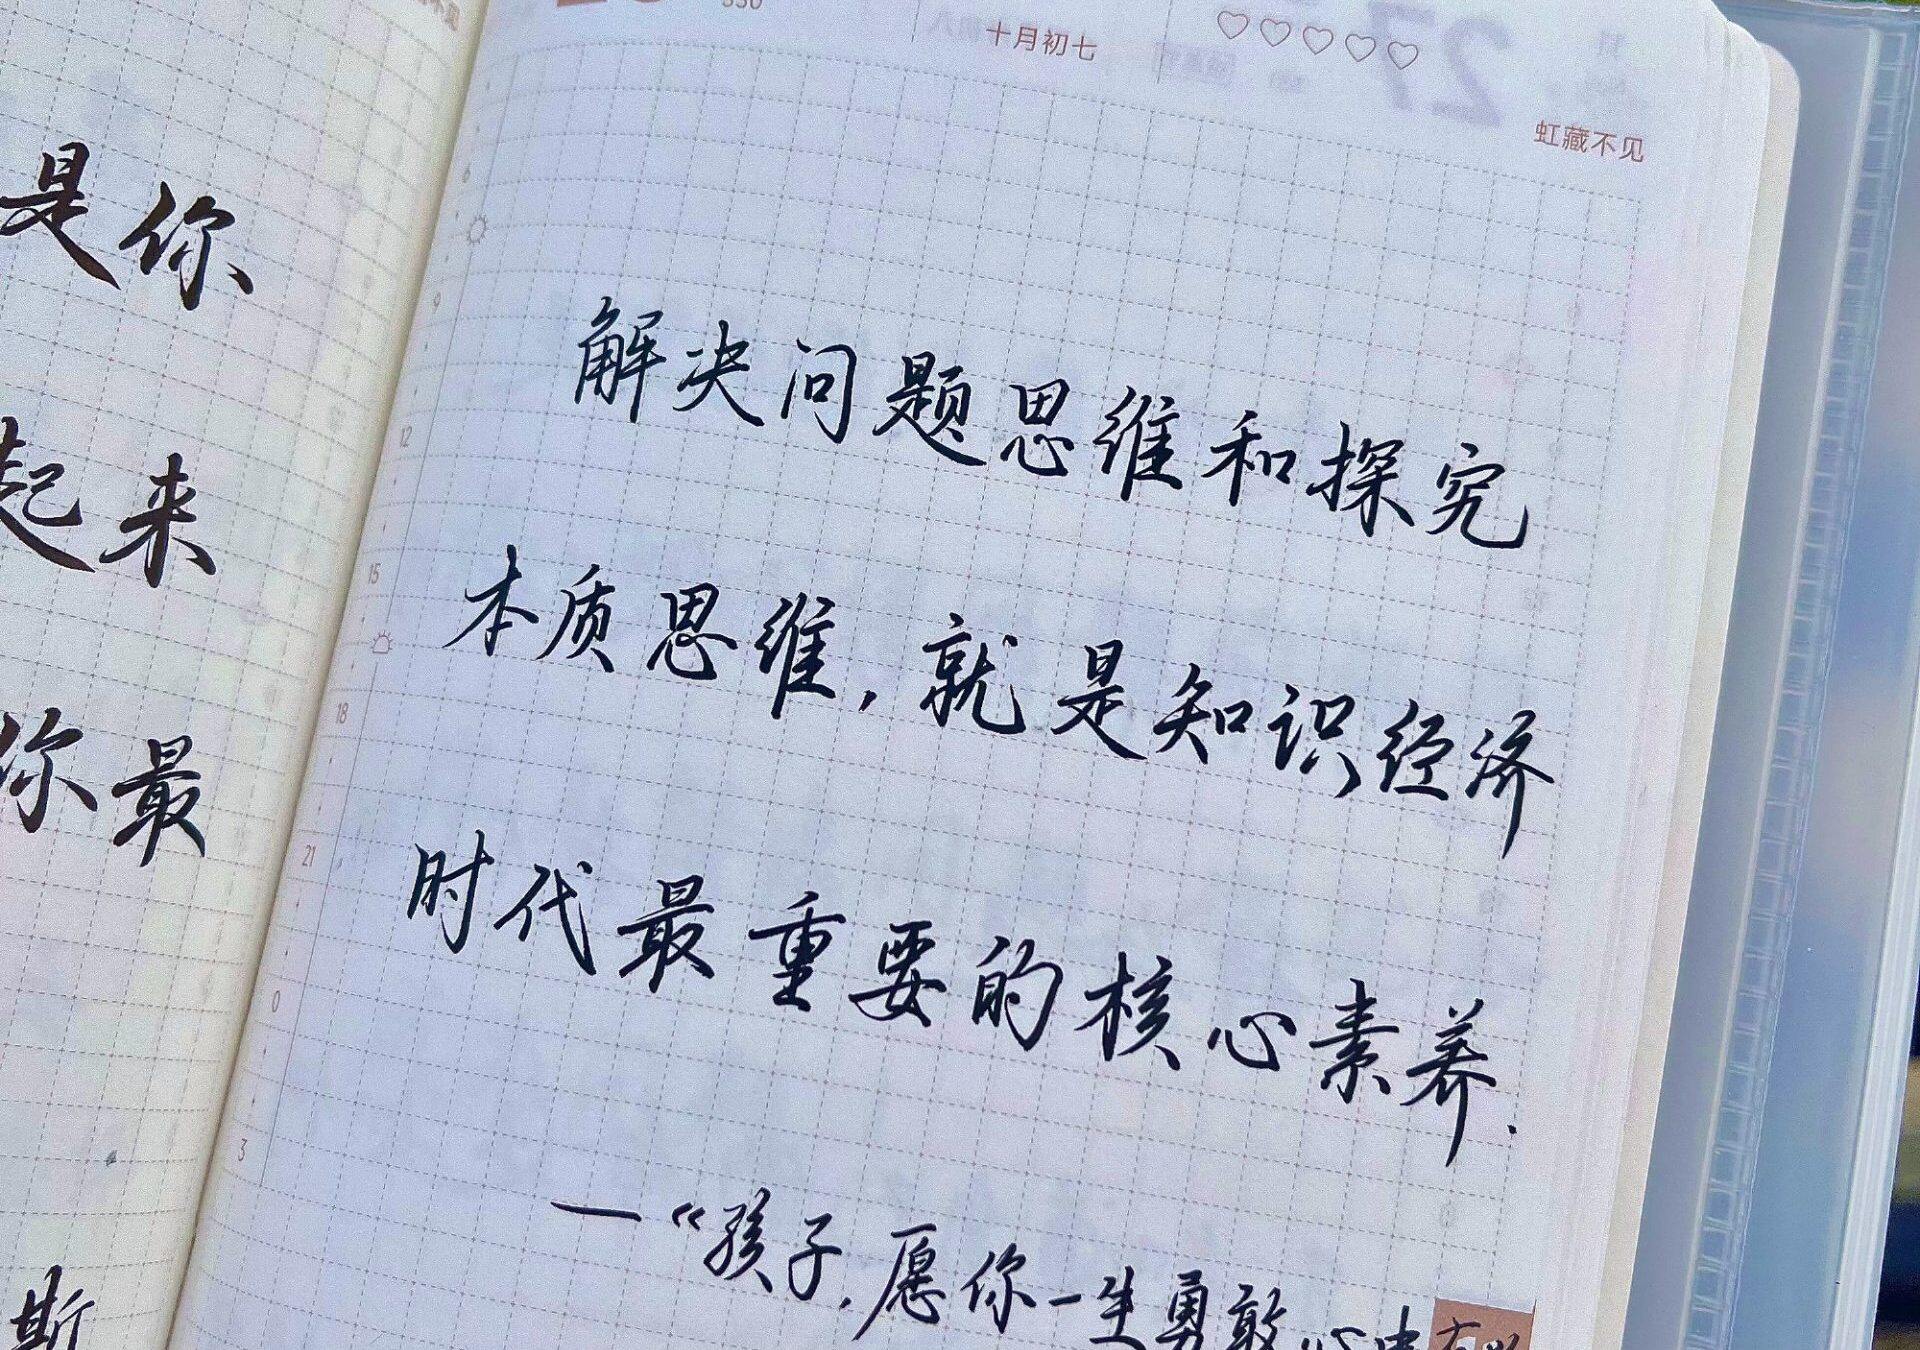 是你
起来
你最
斯
330
十月初七
虹藏不见
9
12
15
18
21
0
3
解决问题思维和探究
本质思维,就是知识经济
时代最重要的核心素养.
—《孩子,愿你一生勇敢心中有